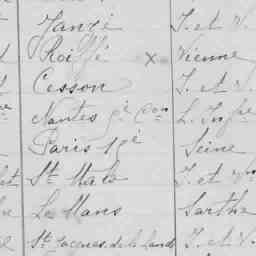 Janzé I. et V.
Roiffé x Vienne
Cesson I. et V.
Nantes Loire Infre
Paris 19è Seine
St Malo I. et Vne
Le Mans Sarthe
St Jacques de la Lande I. et V.